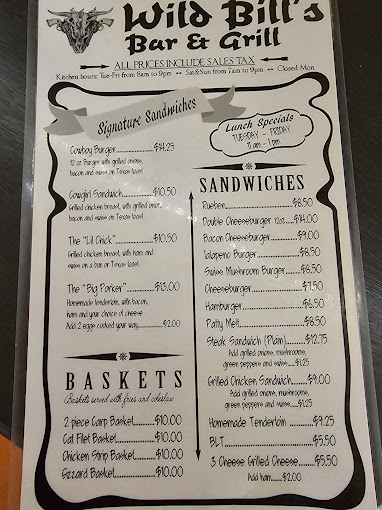 Wild Bill's
Bar & Grill
ALL PRICES INCLUDE SALES TAX
Kitchen hours: Tue-Fri from 8am to 9pm ↔ Sat&Sun from 7am to 9pm ↔ Closed Mon
Signature Sandwiches
Cowboy Burger..............$14.25
12 oz Burger with grilled onions,
bacon and swiss on Texas toast
Cowgirl Sandwich..........$10.50
Grilled chicken breast, with grilled onions,
bacon and swiss on Texas toast
The "Lil Chick"..............$10.50
Grilled chicken breast, with ham and
swiss on a bun or Texas toast
The "Big Porker"............$13.00
Homemade tenderloin, with bacon,
ham and your choice of cheese
Add 2 eggs cooked your way..........$2.00
BASKETS
Baskets served with fries and coleslaw
2 piece Carp Basket..........$10.00
Cat Filet Basket..........$10.00
Chicken Strip Basket..........$10.00
Gizzard Basket..........$10.00
Lunch Specials
TUESDAY - FRIDAY
11 am - 1 pm
SANDWICHES
Rueben..........$8.50
Double Cheeseburger 12oz.....$14.00
Bacon Cheeseburger..........$9.00
Jalapeno Burger..........$8.50
Swiss Mushroom Burger.......$8.50
Cheeseburger..........$7.50
Hamburger..........$6.50
Patty Melt..........$8.50
Steak Sandwich (Plain)..........$12.75
Add grilled onions, mushrooms,
green peppers and swiss.....$1.25
Grilled Chicken Sandwich.....$9.00
Add grilled onions, mushrooms,
green peppers and swiss.....$1.25
Homemade Tenderloin ..........$9.25
BLT..........$5.50
3 Cheese Grilled Cheese.....$5.50
Add ham.......$2.00